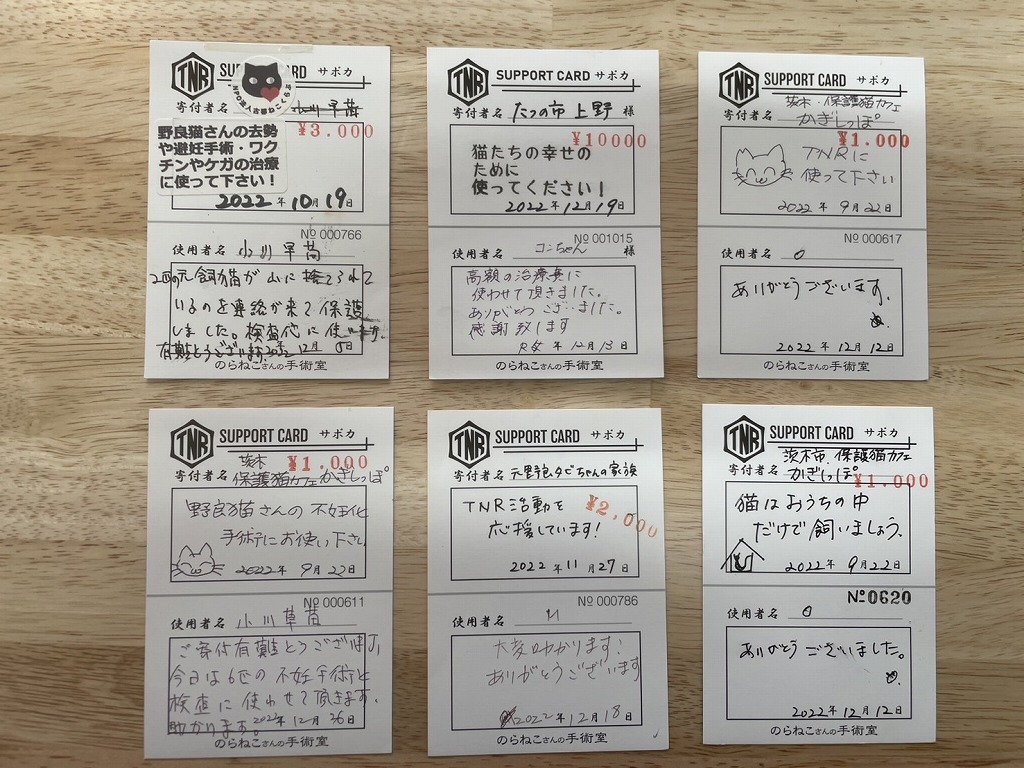 TNR SUPPORT CARD サポカ
NPO法人
寄付者名 小川 早苗
¥3.000
野良猫さんの去勢
や避妊手術・ワク
チンやケガの治療
に使って下さい！
2022年10月19日
№ 000766
使用者名 小川 早苗
2匹の元飼猫が山に捨てられて
いるのを連絡が来て保護
しました。検査代に使います。
有難とうございます
12月
のらねこさんの手術室
TNR SUPPORT CARD サポカ
寄付者名 たつの市 上野 様
¥10000
猫たちの幸せの
ために
使ってください！
2022年12月19日
№ 001015
使用者名 コンちゃん 様
高額の治療費に
使わせて頂きました。
ありがとうございました。
感謝致します
R4年12月13日
のらねこさんの手術室
TNR SUPPORT CARD サポカ
茨木・保護猫カフェ
寄付者名 かぎしっぽ
¥1.000
TNRに
使って下さい
2022年9月22日
№ 000617
使用者名
ありがとうございます。
2022年12月12日
のらねこさんの手術室
TNR SUPPORT CARD サポカ
茨木 ¥1.000
寄付者名 保護猫カフェ かぎしっぽ
野良猫さんの不妊化
手術にお使い下さい
2022年9月22日
№ 000611
使用者名 小川 早苗
ご寄付有難とうございます
今日は6匹の不妊手術と
検査に使わせて頂きます。
助かります。2022年12月26日
のらねこさんの手術室
TNR SUPPORT CARD サポカ
寄付者名 元野良タビちゃんの家族
TNR活動を
応援しています！
¥2,000
2022年11月27日
№ 000786
使用者名 〃
大変助かります！
ありがとうございます
2022年12月18日
のらねこさんの手術室
TNR SUPPORT CARD サポカ
茨木市 保護猫カフェ
寄付者名 かぎしっぽ
¥1.000
猫はおうちの中
だけで飼いましょう。
2022年9月22日
№0620
使用者名
ありがとうございました。
2022年12月12日
のらねこさんの手術室